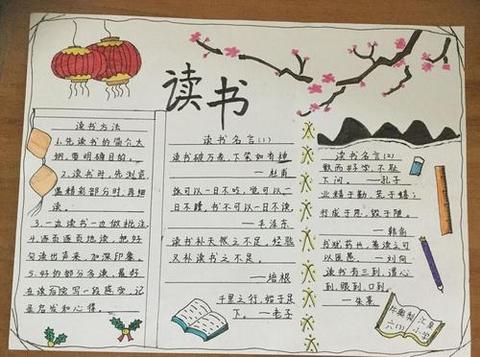 读书
读书方法
1.先读书的简介大
纲,要明确目的。
2.读书时,先浏览,
遇精彩部分时,再细
读。
3.一边读书一边做批注。
4.逐页逐页地读,把好
句读出声来,加深印象。
5.好的部分多读,最好
在读后能写一段感受,记
录启发和心得。
读书名言(1)
读书破万卷,下笔如有神
—杜甫
饭可以一日不吃,觉可以一
日不睡,书不可以一日不读。
—毛泽东
读书补天然之不足,经验
又补读书之不足。
—培根
千里之行,始于足
下。—老子
读书名言(2)
敏而好学,不耻
下问。—孔子
业精于勤,荒于嬉;
行成于思,毁于随。
—韩愈
书犹药也,善读之可
以医愚。—刘向
读书有三到,谓心
到,眼到,口到。
—朱熹
六(3)
小学